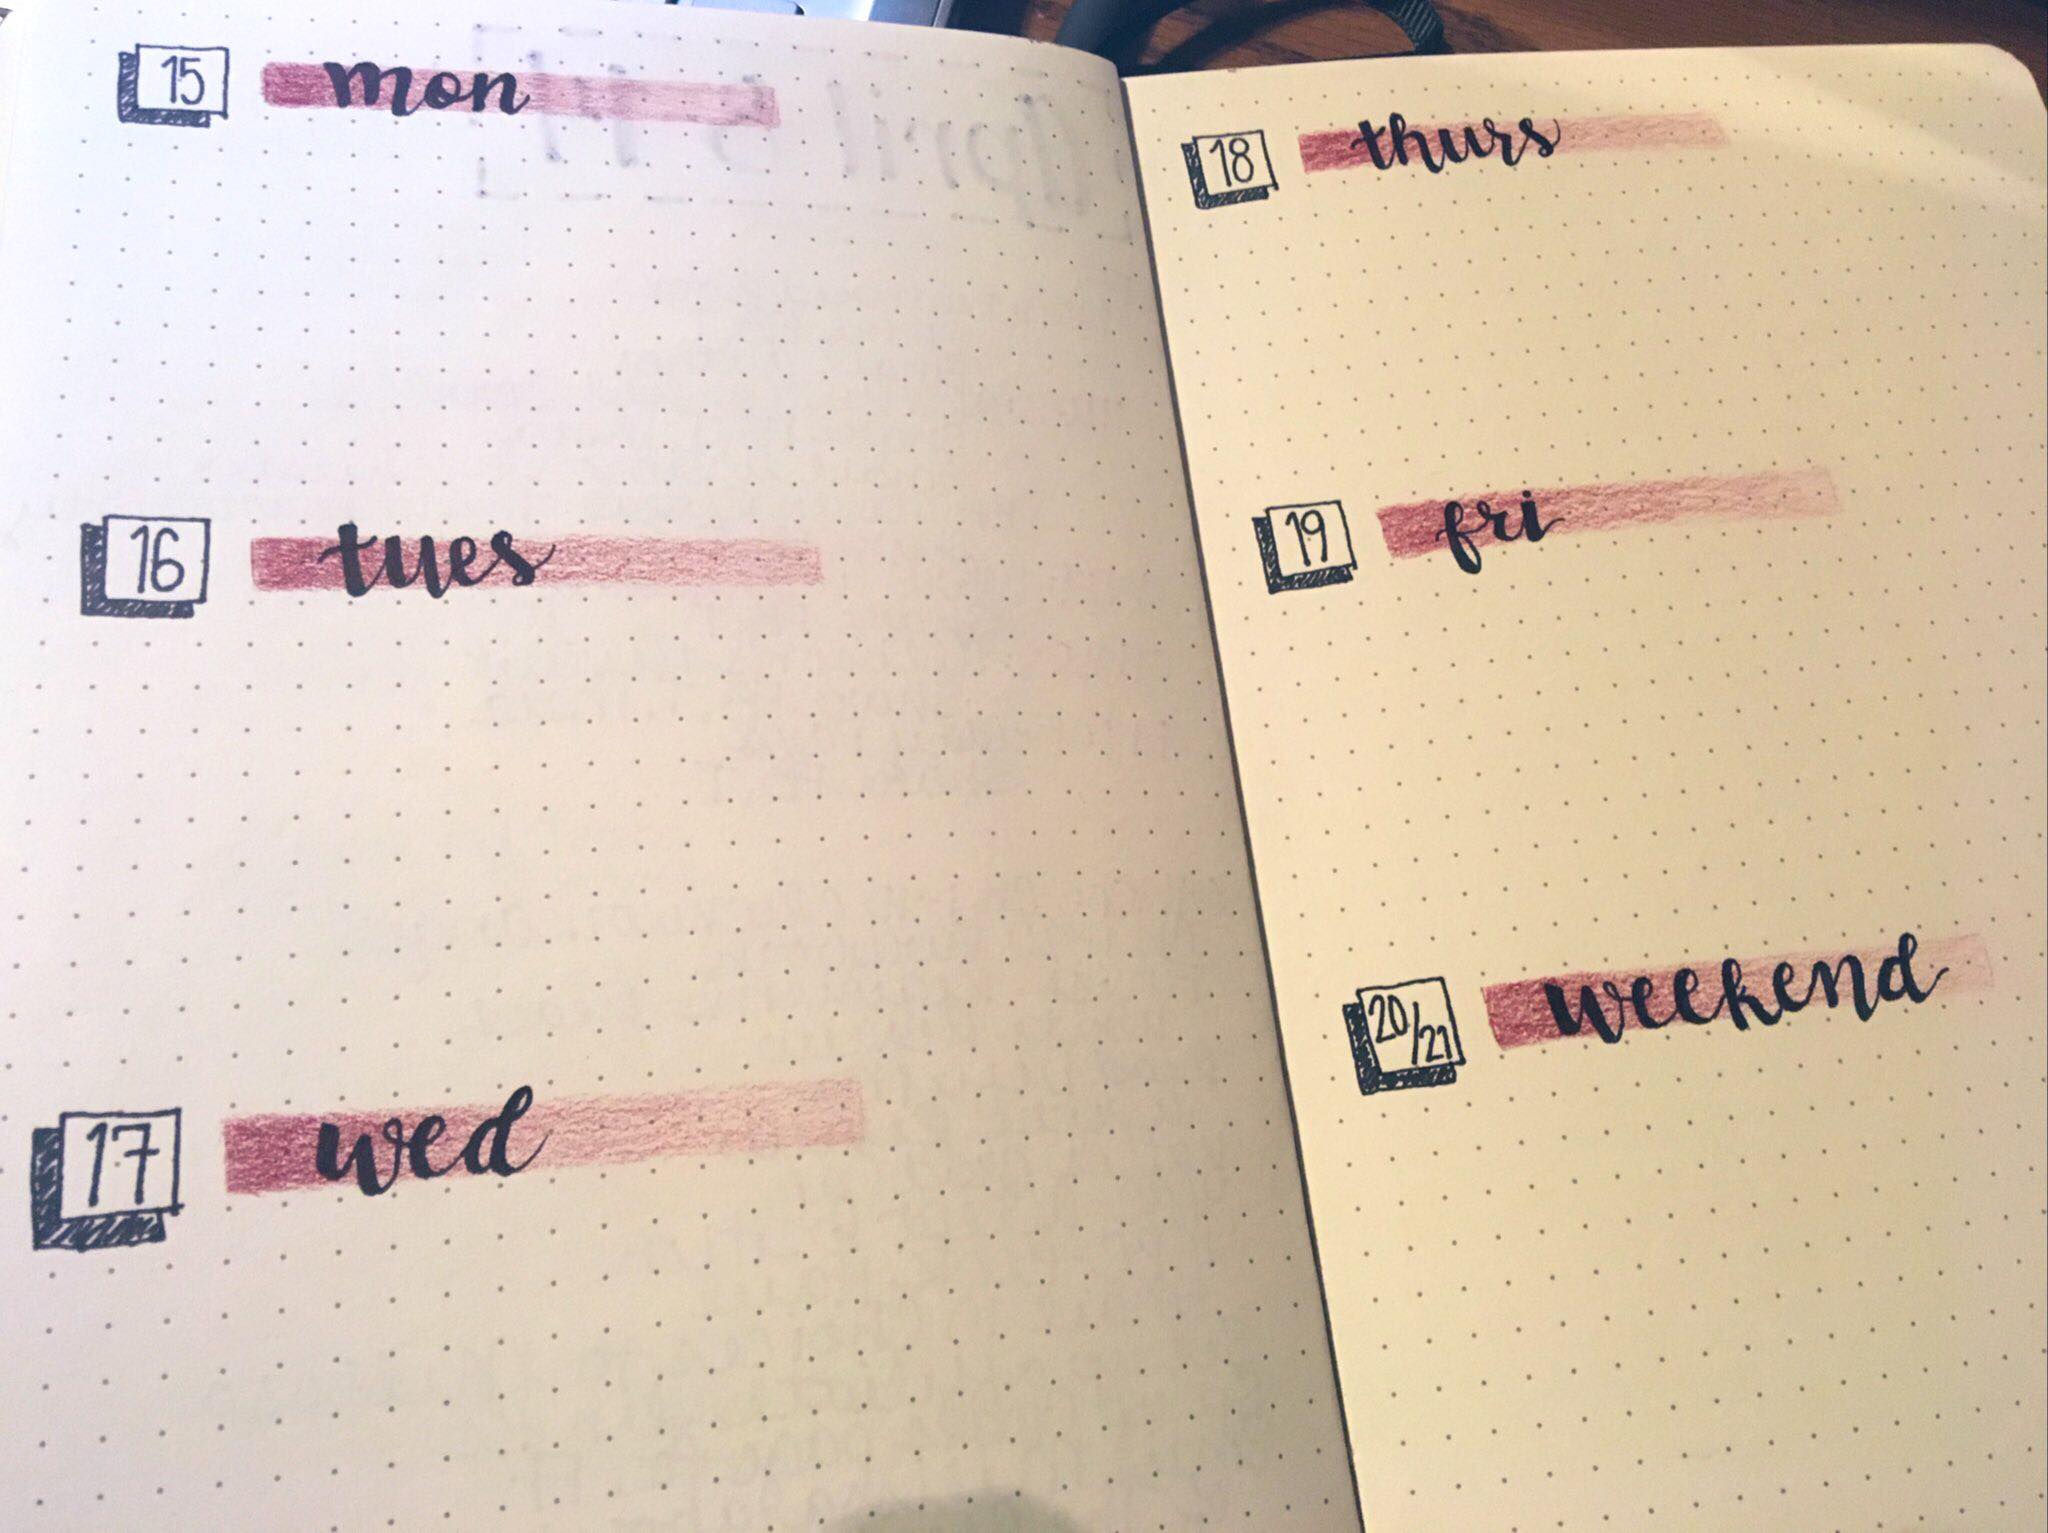 15 mon
16 tues
17 wed
18 thurs
19 fri
20/21 weekend